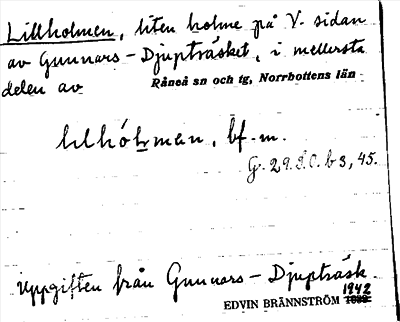 Lillholmen, liten holme på V. sidan
av Gunnars-Djupträsket, i mellersta
delen av Råneå sn och tg, Norrbottens län
lilhólmen, bf. m.
G. 29. S.O. b 3, 45.
Uppgiften från Gunnars-Djupträsk.
1942
EDVIN BRÄNNSTRÖM